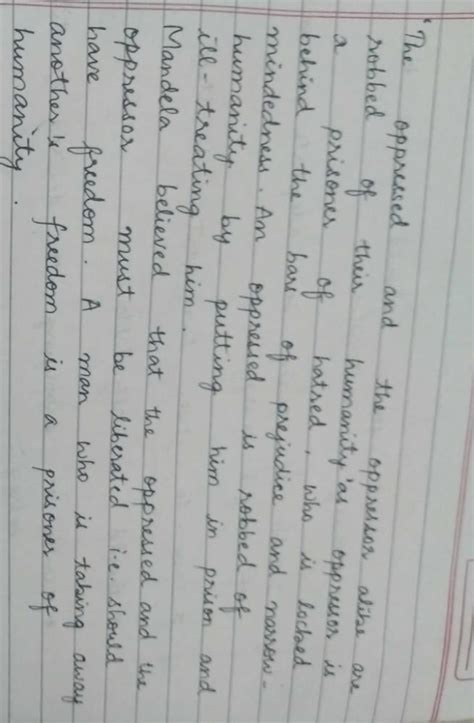 "The oppressed and the oppressor alike are
robbed of their humanity'as oppressor is
a prisoner of hatred, who is locked
behind the bars of prejudice and narrow-
mindedness. An oppressed is robbed of
humanity by putting him in prison and
ill-treating him.
Mandela believed that the oppressed and the
oppressor must be liberated i.e. should
have freedom. A man who is taking away
another's freedom is a prisoner of
humanity.